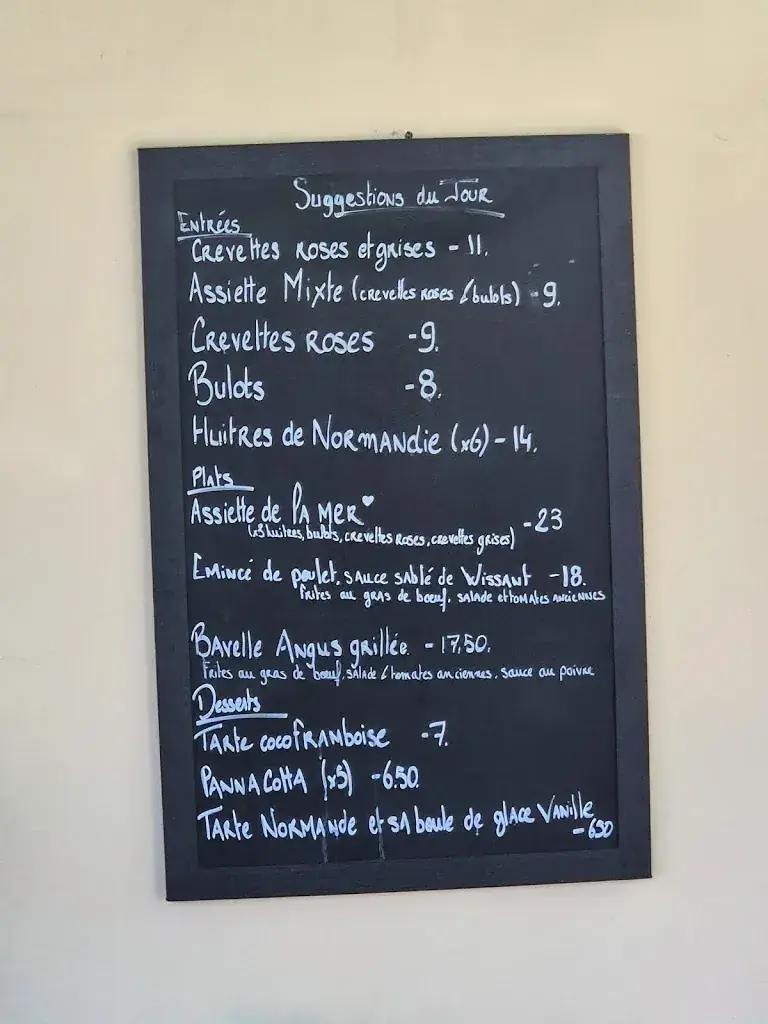 Suggestions du Jour
Entrées
Crevettes roses et grises - 11.
Assiette Mixte (crevettes roses / bulots) - 9.
Crevettes roses - 9.
Bulots - 8.
Huitres de Normandie (x6) - 14.
Plats
Assiette de la mer ♥ - 23
(x3 huitres, bulots, crevettes roses, crevettes grises)
Emincé de poulet, sauce sablé de Wissant - 18.
Frites au gras de boeuf, salade et tomates anciennes
Bavelle Angus grillée - 17,50.
Frites au gras de boeuf, salade / tomates anciennes, sauce au poivre
Desserts
Tarte coco framboise - 7.
Panna cotta - 6.50.
Tarte Normande et sa boule de glace Vanille
- 650